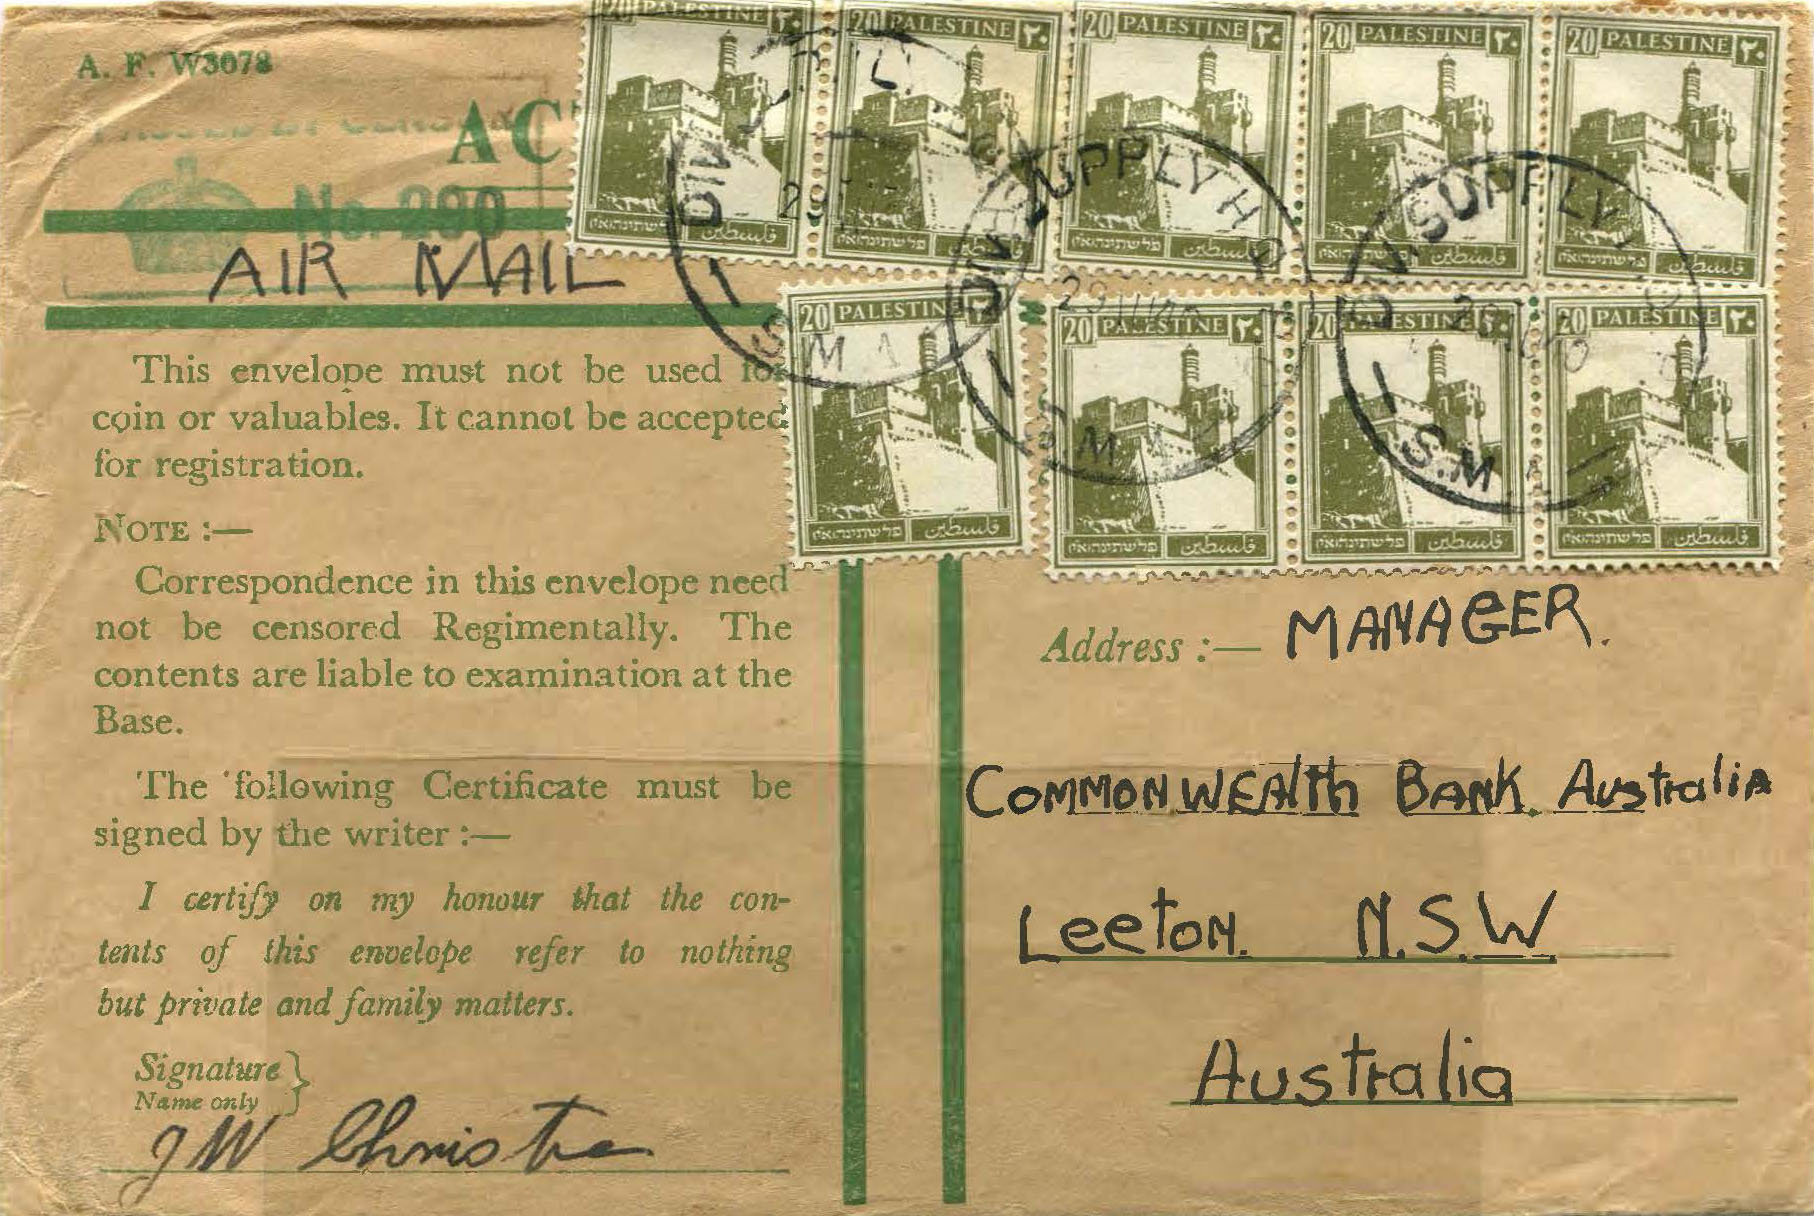 A. F. W3078
PASSED BY CENSOR
AC
No. 290
AIR MAIL
20 PALESTINE ٢٠
20 PALESTINE ٢٠
20 PALESTINE ٢٠
20 PALESTINE ٢٠
20 PALESTINE ٢٠
פלשתינה א״י فلسطين
פלשתינה א״י فلسطين
פלשתינה א״י فلسطين
פלשתינה א״י فلسطين
פלשתינה א״י فلسطين
20 PALESTINE ٢٠
20 PALESTINE ٢٠
20 PALESTINE ٢٠
20 PALESTINE ٢٠
פלשתינה א״י فلسطين
פלשתינה א״י فلسطين
פלשתינה א״י فلسطين
פלשתינה א״י فلسطين
DIV
DIV. SUPPLY H Q
DIV. SUPPLY
This envelope must not be used for
coin or valuables. It cannot be accepted
for registration.
NOTE :—
Correspondence in this envelope need
not be censored Regimentally. The
contents are liable to examination at the
Base.
The following Certificate must be
signed by the writer :—
I certify on my honour that the con-
tents of this envelope refer to nothing
but private and family matters.
Signature }
Name only
JW Christie
Address :— MANAGER.
COMMONWEAlth BANK. AustraliA
LeetoN. N.S.W
Australia